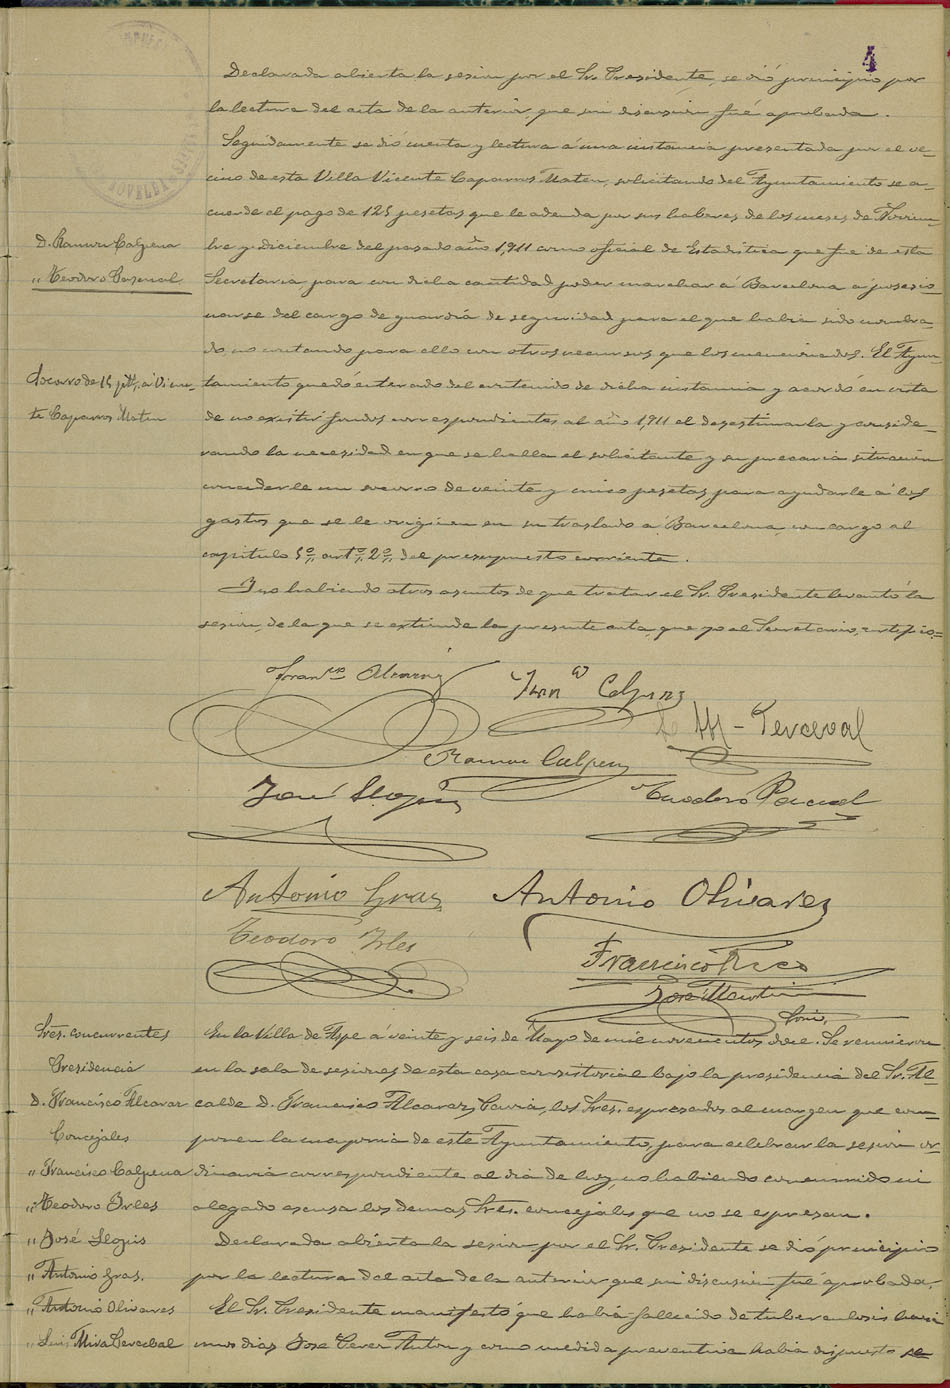 4
Declarada abierta la sesión por el Sr. Presidente, se dió principio por
la lectura del acta de la anterior, que sin discusión fué aprobada.
Seguidamente se dió cuenta y lectura á una instancia presentada por el ve-
cino de esta Villa Vicente Caparros Mateu, solicitando del Ayuntamiento se a-
cuerde el pago de 125 pesetas que le adeuda por sus haberes de los meses de Noviem-
D. Ramon Calpena
bre y diciembre del pasado año 1,911 como oficial de Estadística que fue de esta
" Teodoro Pascual
Secretaria para con dicha cantidad poder marchar á Barcelona á posesio-
narse del cargo de guardia de seguridad para el que habia sido nombra-
do no contando para ello con otros recursos que los mencionados. El Ayun-
Socorro de 25 ptas, a Vicen-
tamiento quedó enterado del contenido de dicha instancia y acordó en vista
te Caparros Mateu
de no existir fondos correspondientes al año 1,911 el desestimarla y conside-
rando la necesidad en que se halla el solicitante y su precaria situación
concederle un socorro de veinte y cinco pesetas para ayudarle á los
gastos que se le originen en su traslado á Barcelona, con cargo al
capitulo 5º art.º 2º del presupuesto corriente.
Y no habiendo otros asuntos de que tratar el Sr. Presidente levantó la
sesión, de la que se extiende la presente acta, que yo el Secretario, certifico.=
Franco Alcaraz
Franco Calpena
L M-Perceval
Ramon Calpena
José Llopis
Teodoro Pascual
Antonio Gras
Antonio Olivares
Teodoro Irles
Francisco Rico
José Martin
Srio,
Sres. concurrentes
En la Villa de Aspe á veinte y seis de Mayo de mil novecientos doce. Se reunieron
Presidencia
en la sala de sesiones de esta casa consistorial bajo la presidencia del Sr. Al-
D. Francisco Alcaraz
calde D. Francisco Alcaraz Cavia, los Sres. expresados al margen que com-
Concejales
ponen la mayoria de este Ayuntamiento, para celebrar la sesion or-
" Francisco Calpena
dinaria correspondiente al dia de hoy, no habiendo concurrido ni
" Teodoro Irles
alegado escusa los demas Sres. concejales que no se expresan.
" José Llopis
Declarada abierta la sesion por el Sr. Presidente se dió principio
" Antonio Gras.
por la lectura del acta de la anterior que sin discusion fué aprobada.
" Antonio Olivares
El Sr. Presidente manifestó que habia fallecido de tuberculosis hacia
" Luis Mira Percebal
unos dias Jose Cerer Anton y como medida preventiva habia dispuesto se